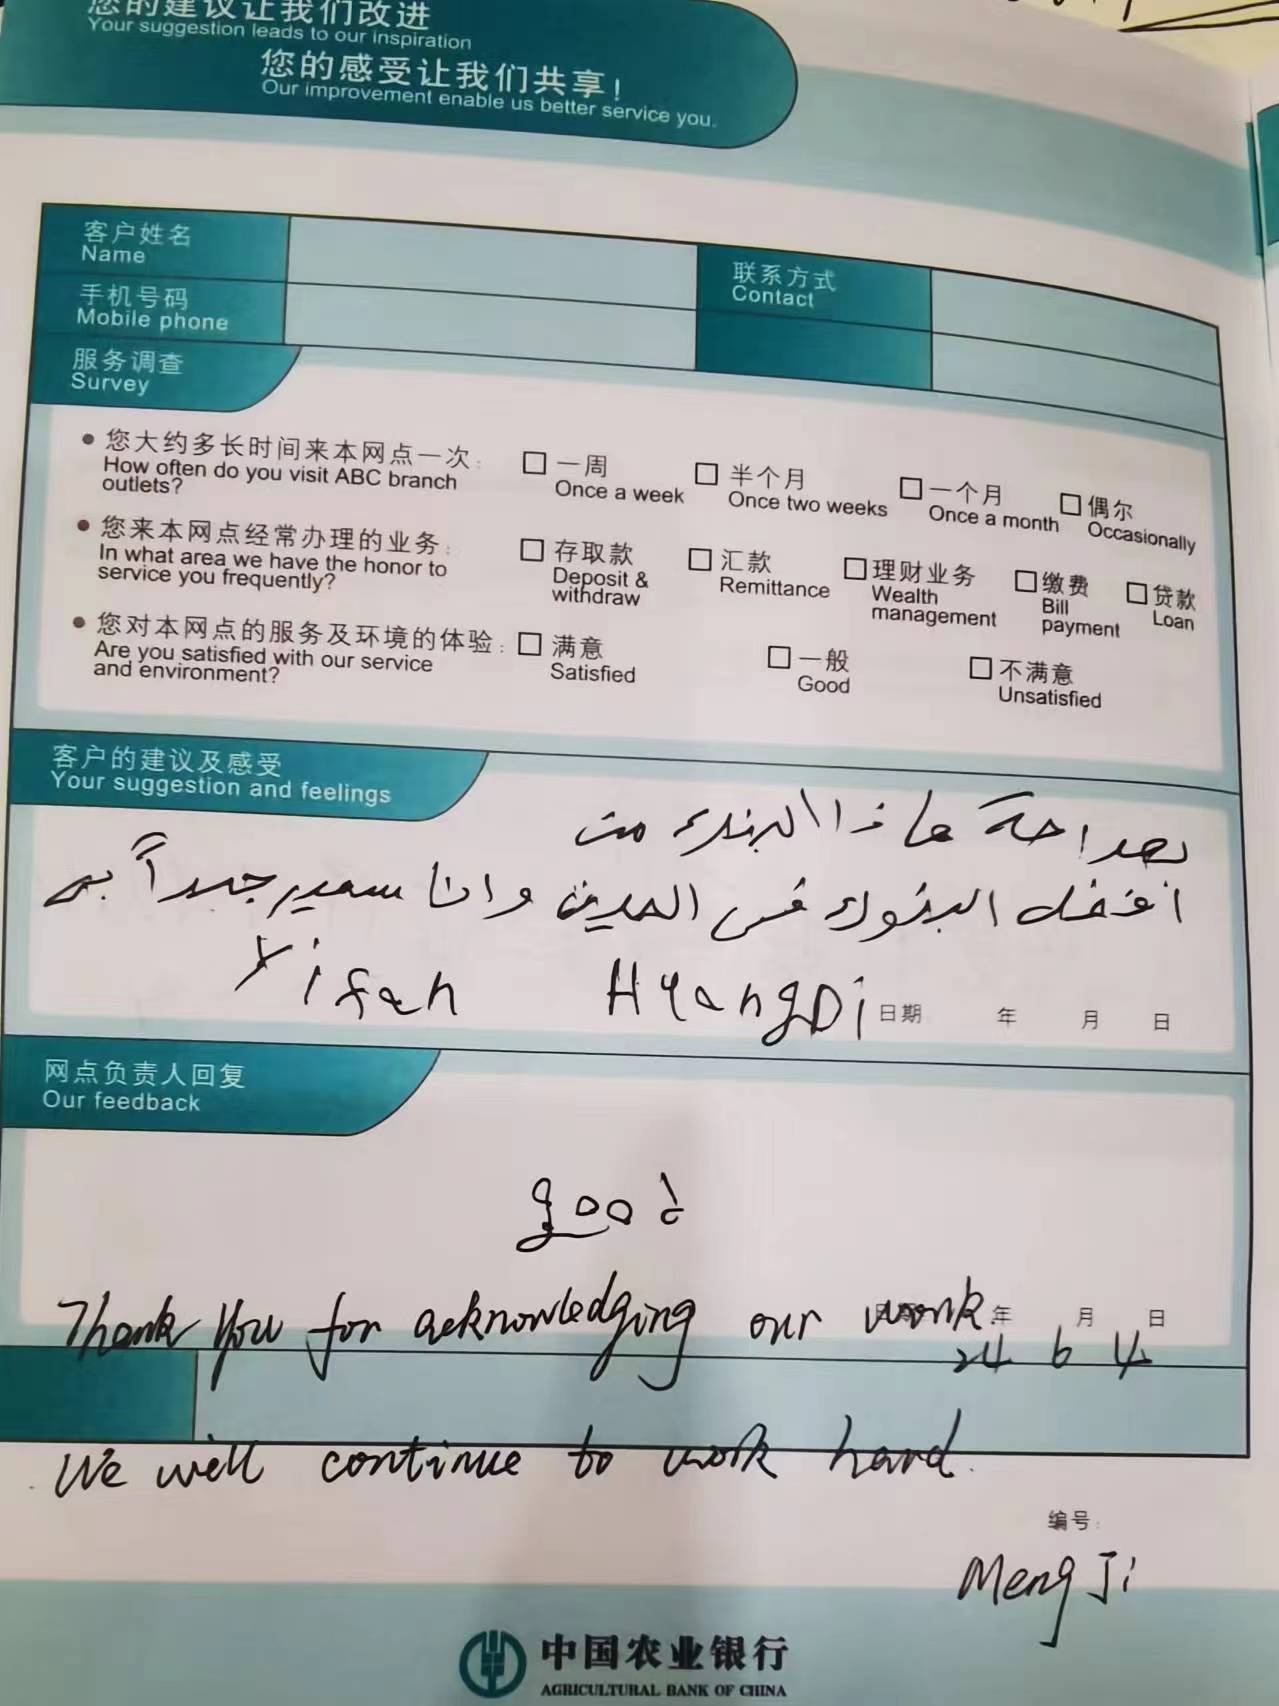 您的建议让我们改进
Your suggestion leads to our inspiration
您的感受让我们共享！
Our improvement enable us better service you.
客户姓名
Name
联系方式
Contact
手机号码
Mobile phone
服务调查
Survey
您大约多长时间来本网点一次： □ 一周 □ 半个月 □ 一个月 □ 偶尔
How often do you visit ABC branch outlets? Once a week Once two weeks Once a month Occasionally
您来本网点经常办理的业务： □ 存取款 □ 汇款 □ 理财业务 □ 缴费 □ 贷款
In what area we have the honor to service you frequently? Deposit & withdraw Remittance Wealth management Bill payment Loan
您对本网点的服务及环境的体验： □ 满意 □ 一般 □ 不满意
Are you satisfied with our service and environment? Satisfied Good Unsatisfied
客户的建议及感受
Your suggestion and feelings
بصراحة هاذا البنك من
افضل البنوك في الصين وانا سعيد جداً به
Yifan HyangDi 日期 年 月 日
网点负责人回复
Our feedback
good
Thank you for acknowledging our work 年 月 日
24 6 4
We will continue to work hard.
编号：
Meng Ji
中国农业银行
AGRICULTURAL BANK OF CHINA